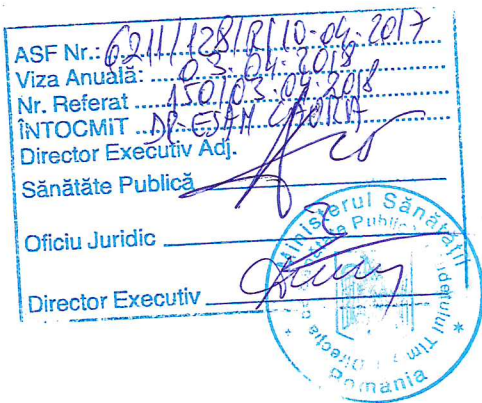 ASF Nr.: 6211/128/R/10-04-2017
Viza Anuală: 03.04.2018
Nr. Referat 150/03.04.2018
ÎNTOCMIT DR. ESAM
Director Executiv Adj.
Sănătate Publică
Oficiu Juridic
Director Executiv
Ministerul Sănătății
România
Direcția de Sănătate Publică
Județului Tim